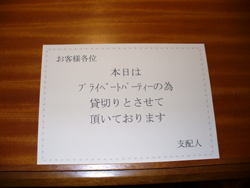 お客様各位
本日は
ﾌﾟﾗｲﾍﾞｰﾄﾊﾟｰﾃｨｰの為
貸切りとさせて
頂いております
支配人